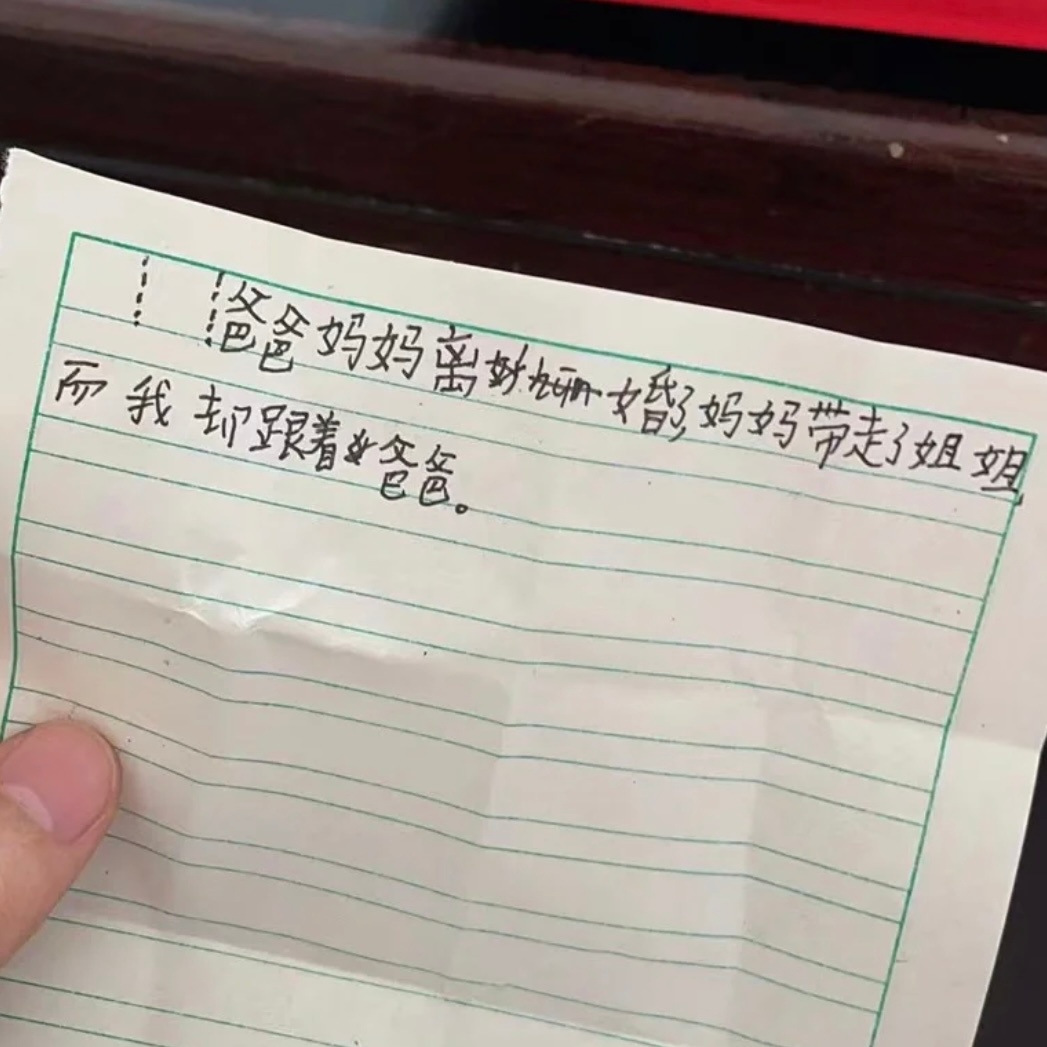 爸爸妈妈离婚了妈妈带走了姐姐
而我却跟着爸爸。